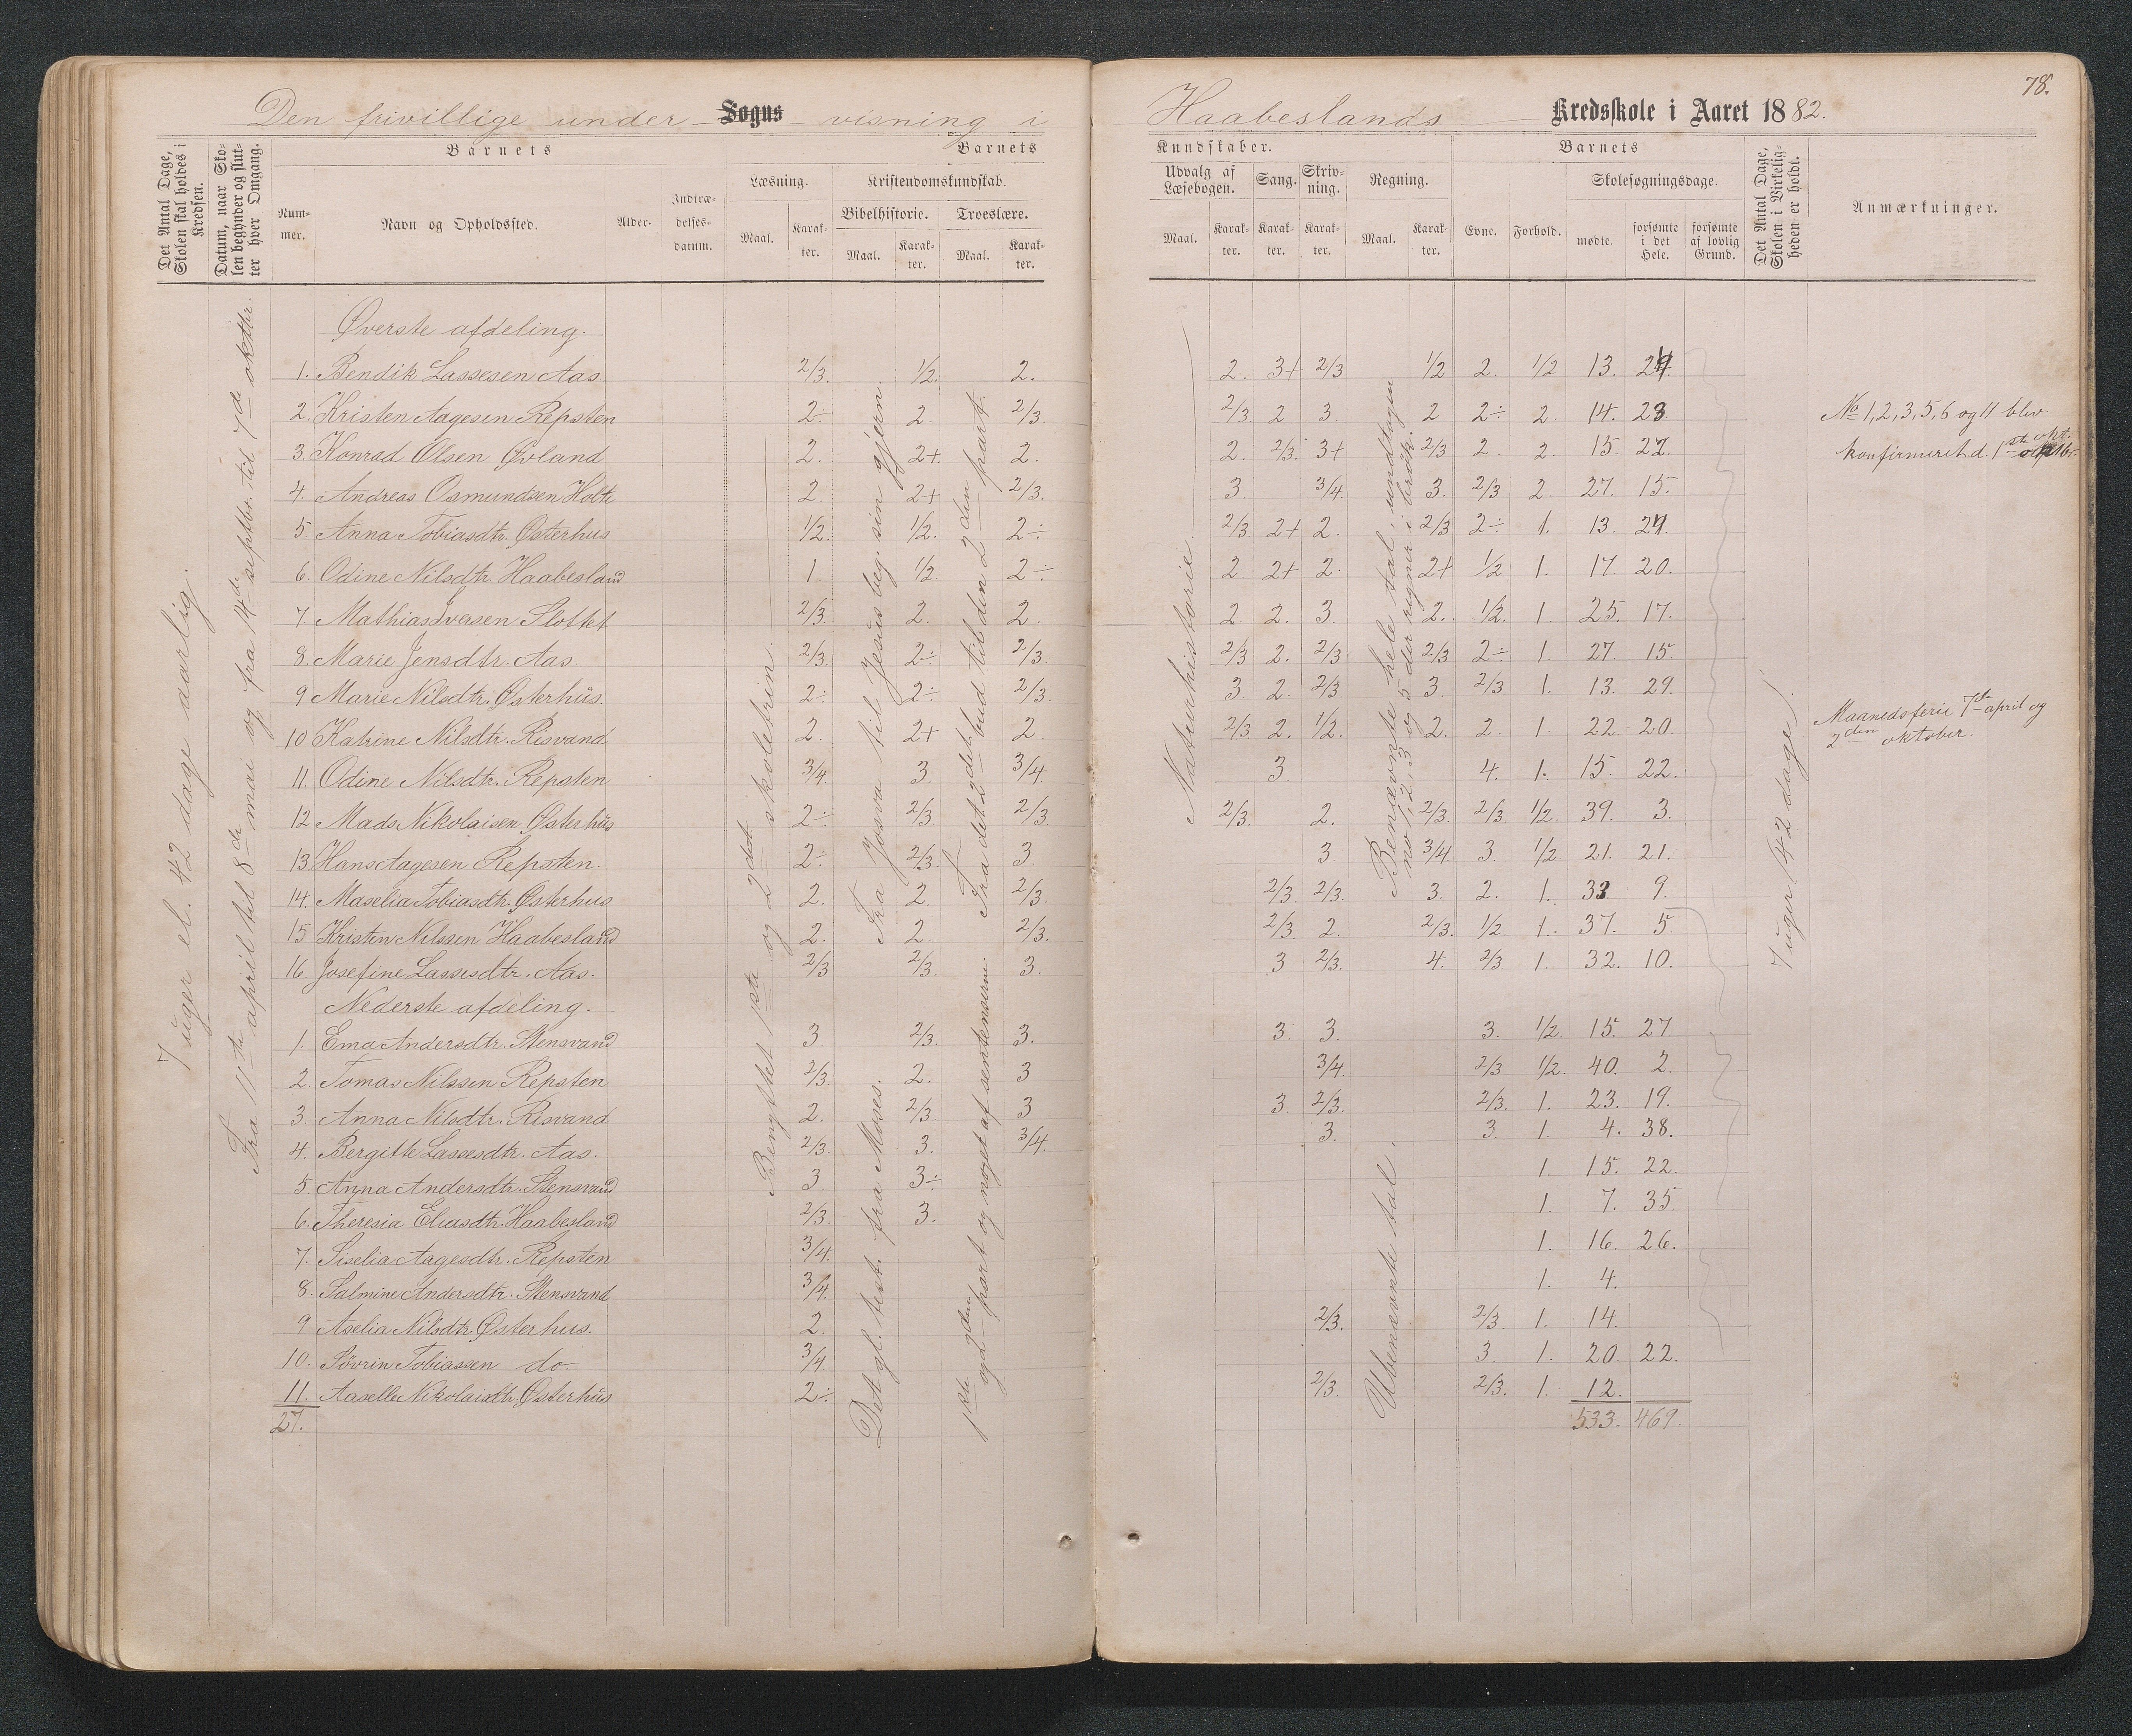 78.
Den frivillige under- Sogns -visning i Haabeslands Kredsskole i Aaret 1882.
Det Antal Dage, Skolen skal holdes i Kredsen.
Datum, naar Skolen begynder og slutter hver Omgang.
Barnets
Nummer.
Navn og Opholdssted.
Alder.
Indtrædelsesdatum.
Barnets
Læsning.
Maal.
Karakter.
Kristendomskundskab.
Bibelhistorie.
Maal.
Karakter.
Troeslære.
Maal.
Karakter.
Kundskaber.
Udvalg af Læsebogen.
Maal.
Karakter.
Sang.
Karakter.
Skrivning.
Karakter.
Regning.
Maal.
Karakter.
Barnets
Evne.
Forhold.
Skolesøgningsdage.
mødte.
forsømte i det Hele.
forsømte af lovlig Grund.
Det Antal Dage, Skolen i Virkeligheden er holdt.
Anmærkninger.
7 uger el. 42 dage aarlig.
Fra 11te april til 8de mai og fra 14de septbr. til 7de oktbr.
Benyttet 1ste og 2det skoletrin.
Fra Josva til Jesus beg. sin gjern.
Det gl. test. fra Moses.
Fra det 2det bud til den 2den part.
1ste og 2den part og noget af sentenserne.
Naturhistorie.
Benævnte hele tal, undtagen
no 1, 2, 3 og 5 der regner i brøk.
Ubenævnte tal.
7 uger (42 dage).
Øverste afdeling.
1. Bendik Lassesen Aas. 2/3. 1/2. 2. 2. 3+ 2/3 1/2 2. 1/2 13. 24.
2. Kristen Aagesen Repsten 2÷ 2. 2/3. 2/3. 2 3. 2 2÷ 2. 14. 23
3. Konrad Olsen Øvland 2. 2+. 2. 2. 2/3. 3+ 2/3 2. 2. 15. 27.
4. Andreas Osmundsen Holte 2. 2+ 2/3. 3. 3/4. 3. 2/3 2. 27. 15.
5. Anna Tobiasdtr. Østerhus 1/2. 1/2. 2÷ 2/3 2+ 2. 2/3 2÷ 1. 13. 24.
6. Odine Nilsdtr. Haabesland 1. 1/2. 2÷ 2 2+ 2. 2+ 1/2 1. 17. 20.
7. Mathias Iversen Slottet 2/3. 2. 2. 2. 2. 3. 2. 1/2. 1. 25. 17.
8. Marie Jensdtr. Aas. 2/3. 2÷ 2/3. 2/3 2. 2/3 2/3 2÷ 1. 27. 15.
9 Marie Nilsdtr. Østerhus. 2÷ 2÷ 2/3 3. 2. 2/3. 3. 2/3. 1. 13. 29.
10 Katrine Nilsdtr. Risvand 2. 2+ 2. 2/3. 2. 1/2. 2. 2. 1. 22. 20.
11. Odine Nilsdtr. Repsten 3/4 3. 3/4 3. 4. 1. 15. 22.
12 Mads Nikolaisen Østerhus 2÷ 2/3 2/3 2/3. 2. 2/3. 2/3. 1/2. 39. 3.
13. Hans Aagesen Repsten. 2÷ 2/3. 3 3 3/4. 3. 1/2 21. 21.
14. Maselia Tobiasdtr. Østerhus 2. 2. 2/3. 2/3. 2/3. 3. 2. 1. 33 9.
15 Kristen Nilssen Haabesland 2. 2 2/3. 2/3. 2. 2/3. 1/2. 1. 37. 5.
16 Josefine Lassesdtr. Aas. 2/3 2/3. 3. 3 2/3. 4. 2/3 1. 32. 10.
Nederste afdeling.
1. Ema Andersdtr. Stensvand 3 2/3. 3. 3. 3. 3. 1/2. 15. 27
2. Tomas Nilssen Repsten 2/3. 2. 3 3/4. 2/3 1/2. 40. 2.
3. Anna Nilsdtr. Risvand 2. 2/3 3 3. 2/3. 2/3. 1. 23. 19.
4. Bergitte Lassesdtr. Aas. 2/3. 3. 3/4. 3. 3. 1. 4. 38.
5. Anna Andersdtr. Stensvand 3 3÷ 1. 15. 22.
6. Theresia Eliasdtr. Haabesland 2/3. 3. 1. 7. 35.
7. Siselia Aagesdtr. Repsten 3/4. 1. 16. 26.
8. Salmine Andersdtr. Stensvand 3/4. 1. 4.
9 Aselia Nilsdtr. Østerhus. 2. 2/3. 2/3. 1. 14.
10. Sövrin Tobiassen do. 3/4. 3. 1. 20. 22.
11. Aaselle Nikolaisdtr. Østerhus 2÷ 2/3. 2/3. 1. 12.
27. 533. 469.
No 1, 2, 3, 5, 6 og 11 blev
konfirmeret d. 1ste okt.
Maanedsferie 7de april og
2den oktober.